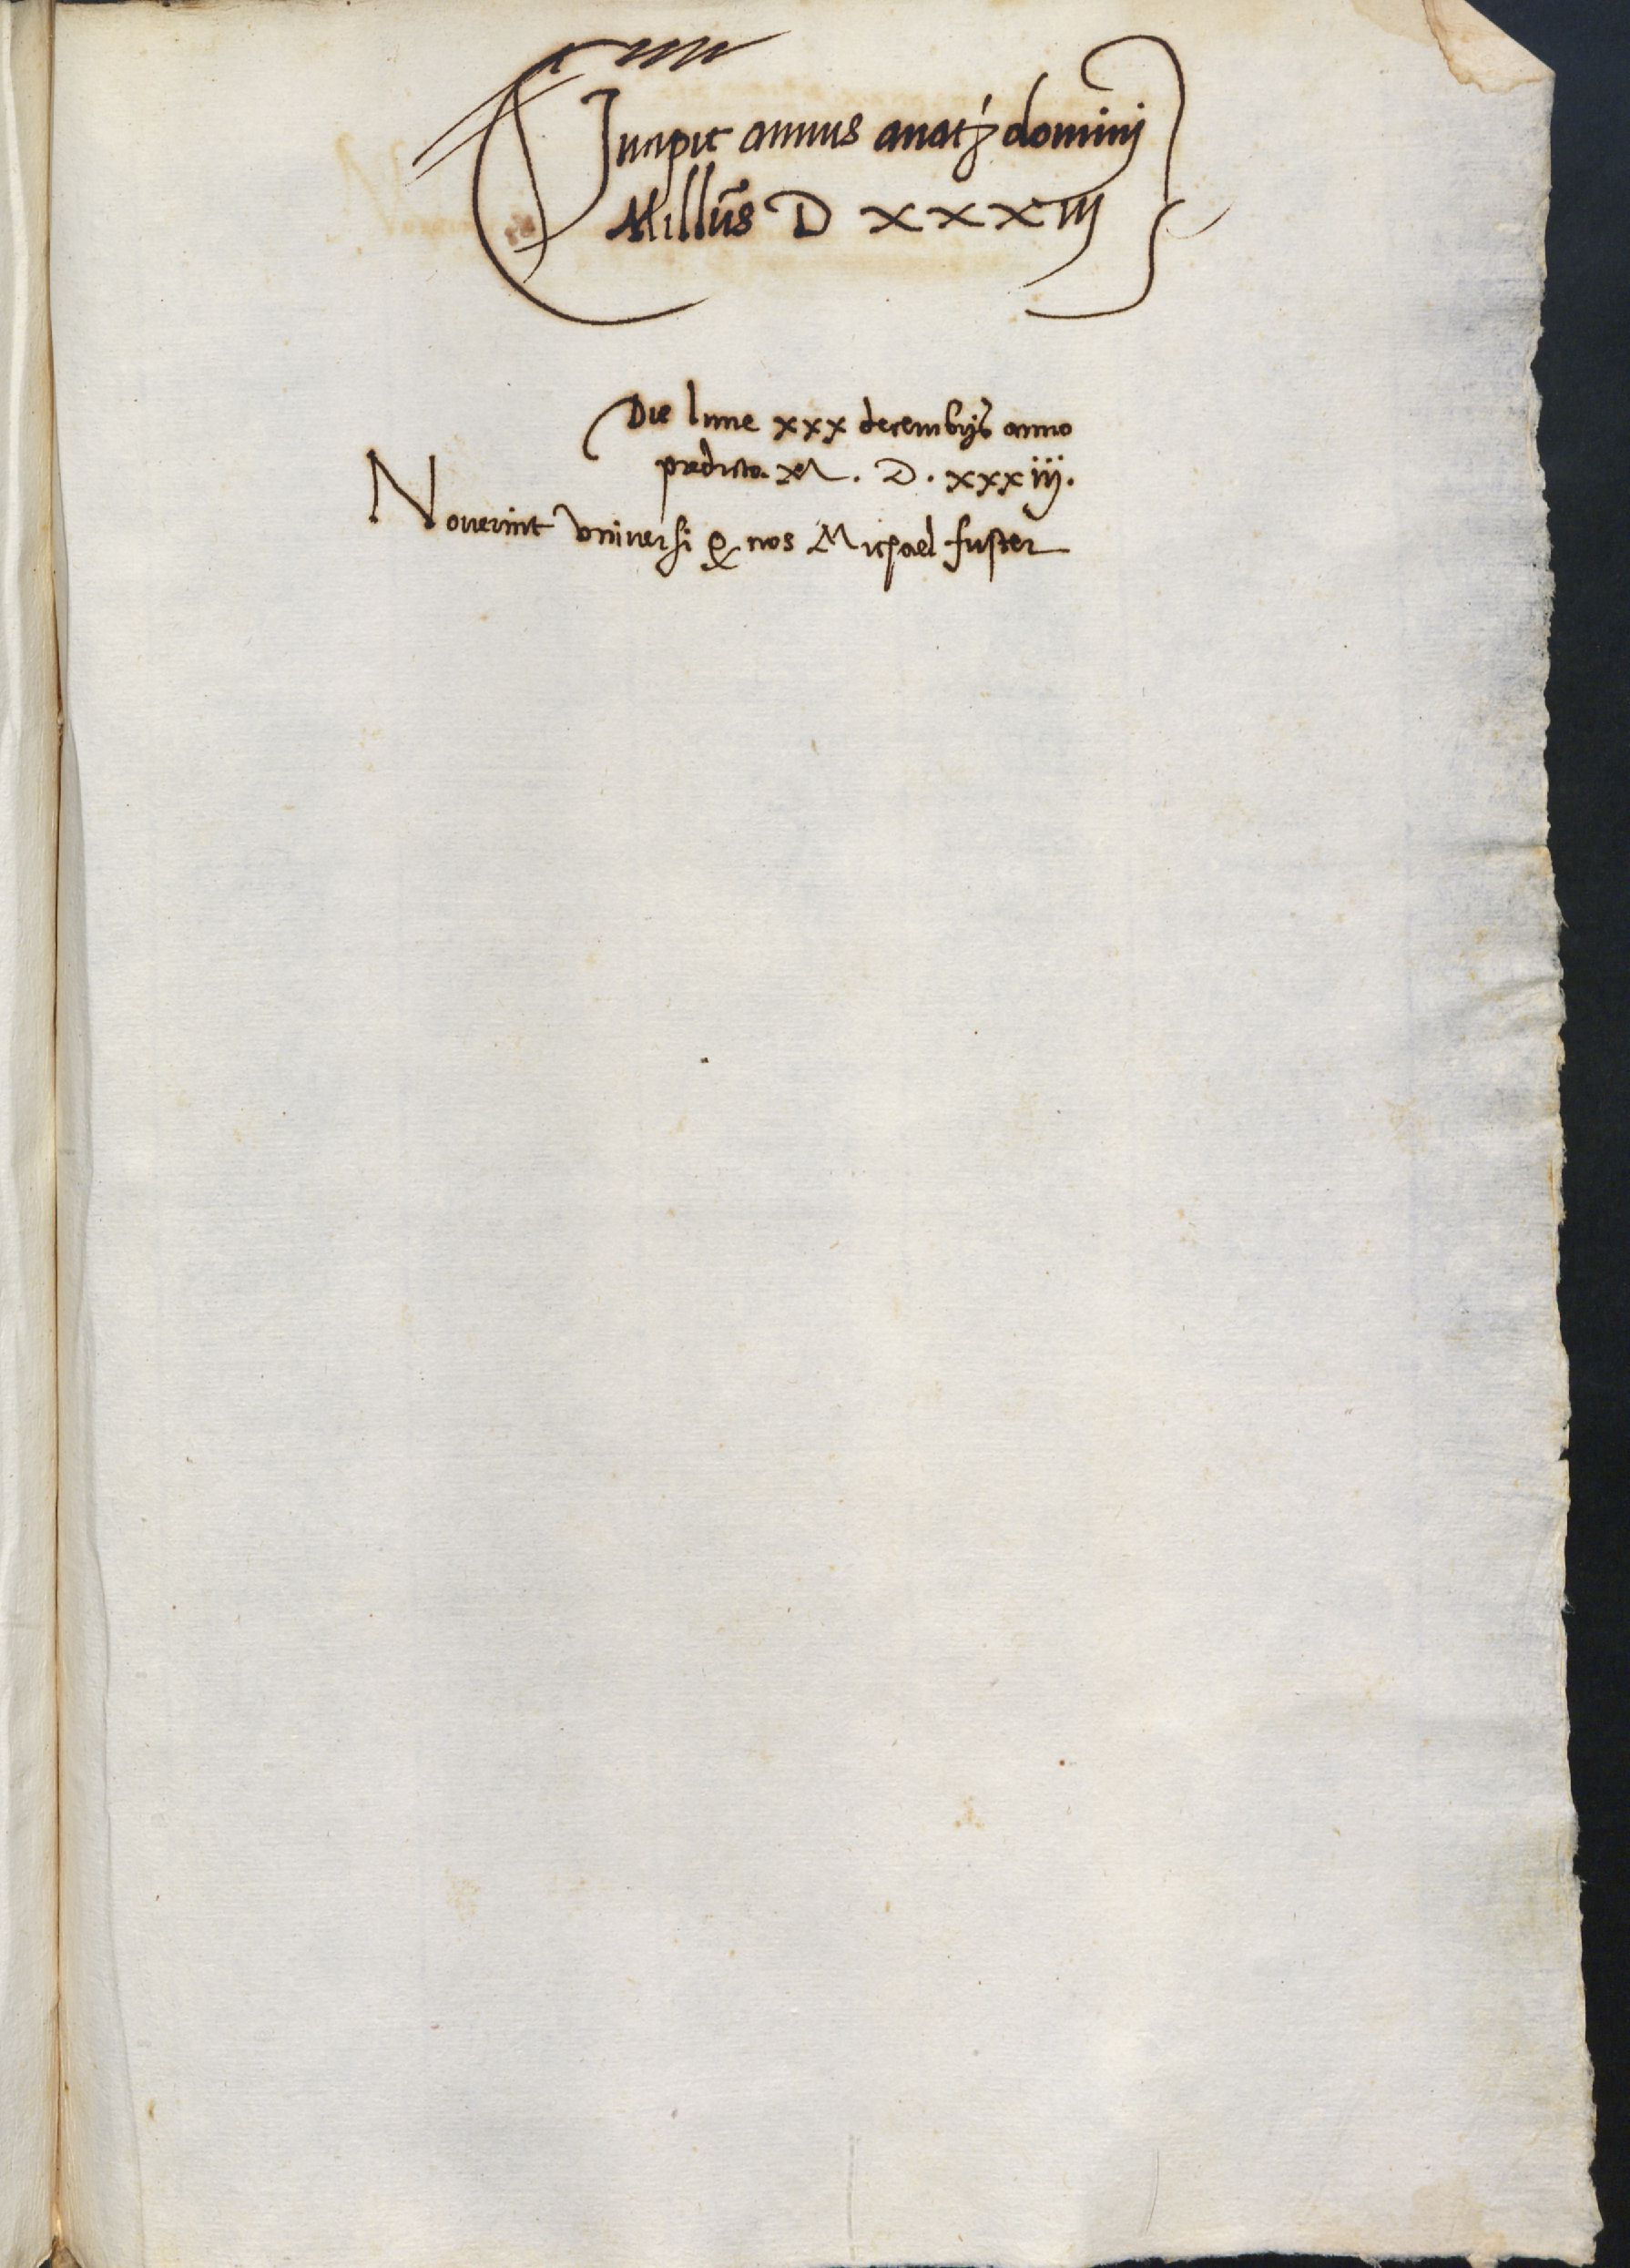 Incipit annus a natẏ domini
Millũs D xxxiij
Die lune xxx decembrjs anno
predicto M . D . xxxiij .
Nouerint vniuersi ꝙ nos Michael fuster